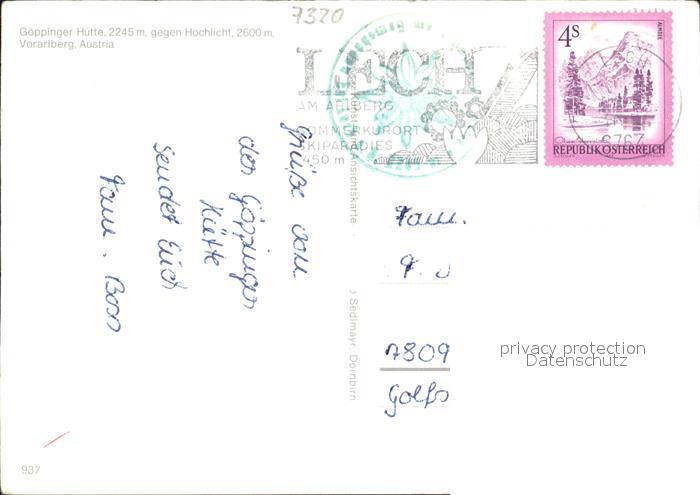 7320
Göppinger Hütte, 2245 m, gegen Hochlicht, 2600 m,
Vorarlberg, Austria
LECH
AM ARLBERG
SOMMERKURORT
SKIPARADIES
1450 m
4S
ALMSEE
REPUBLIK ÖSTERREICH
6767
Ansichtskarte
Sedlmayr, Dornbirn
Grüße von
der Göppinger
Hütte
sendet Euch
Fam.
Fam.
7809
privacy protection
Datenschutz
937